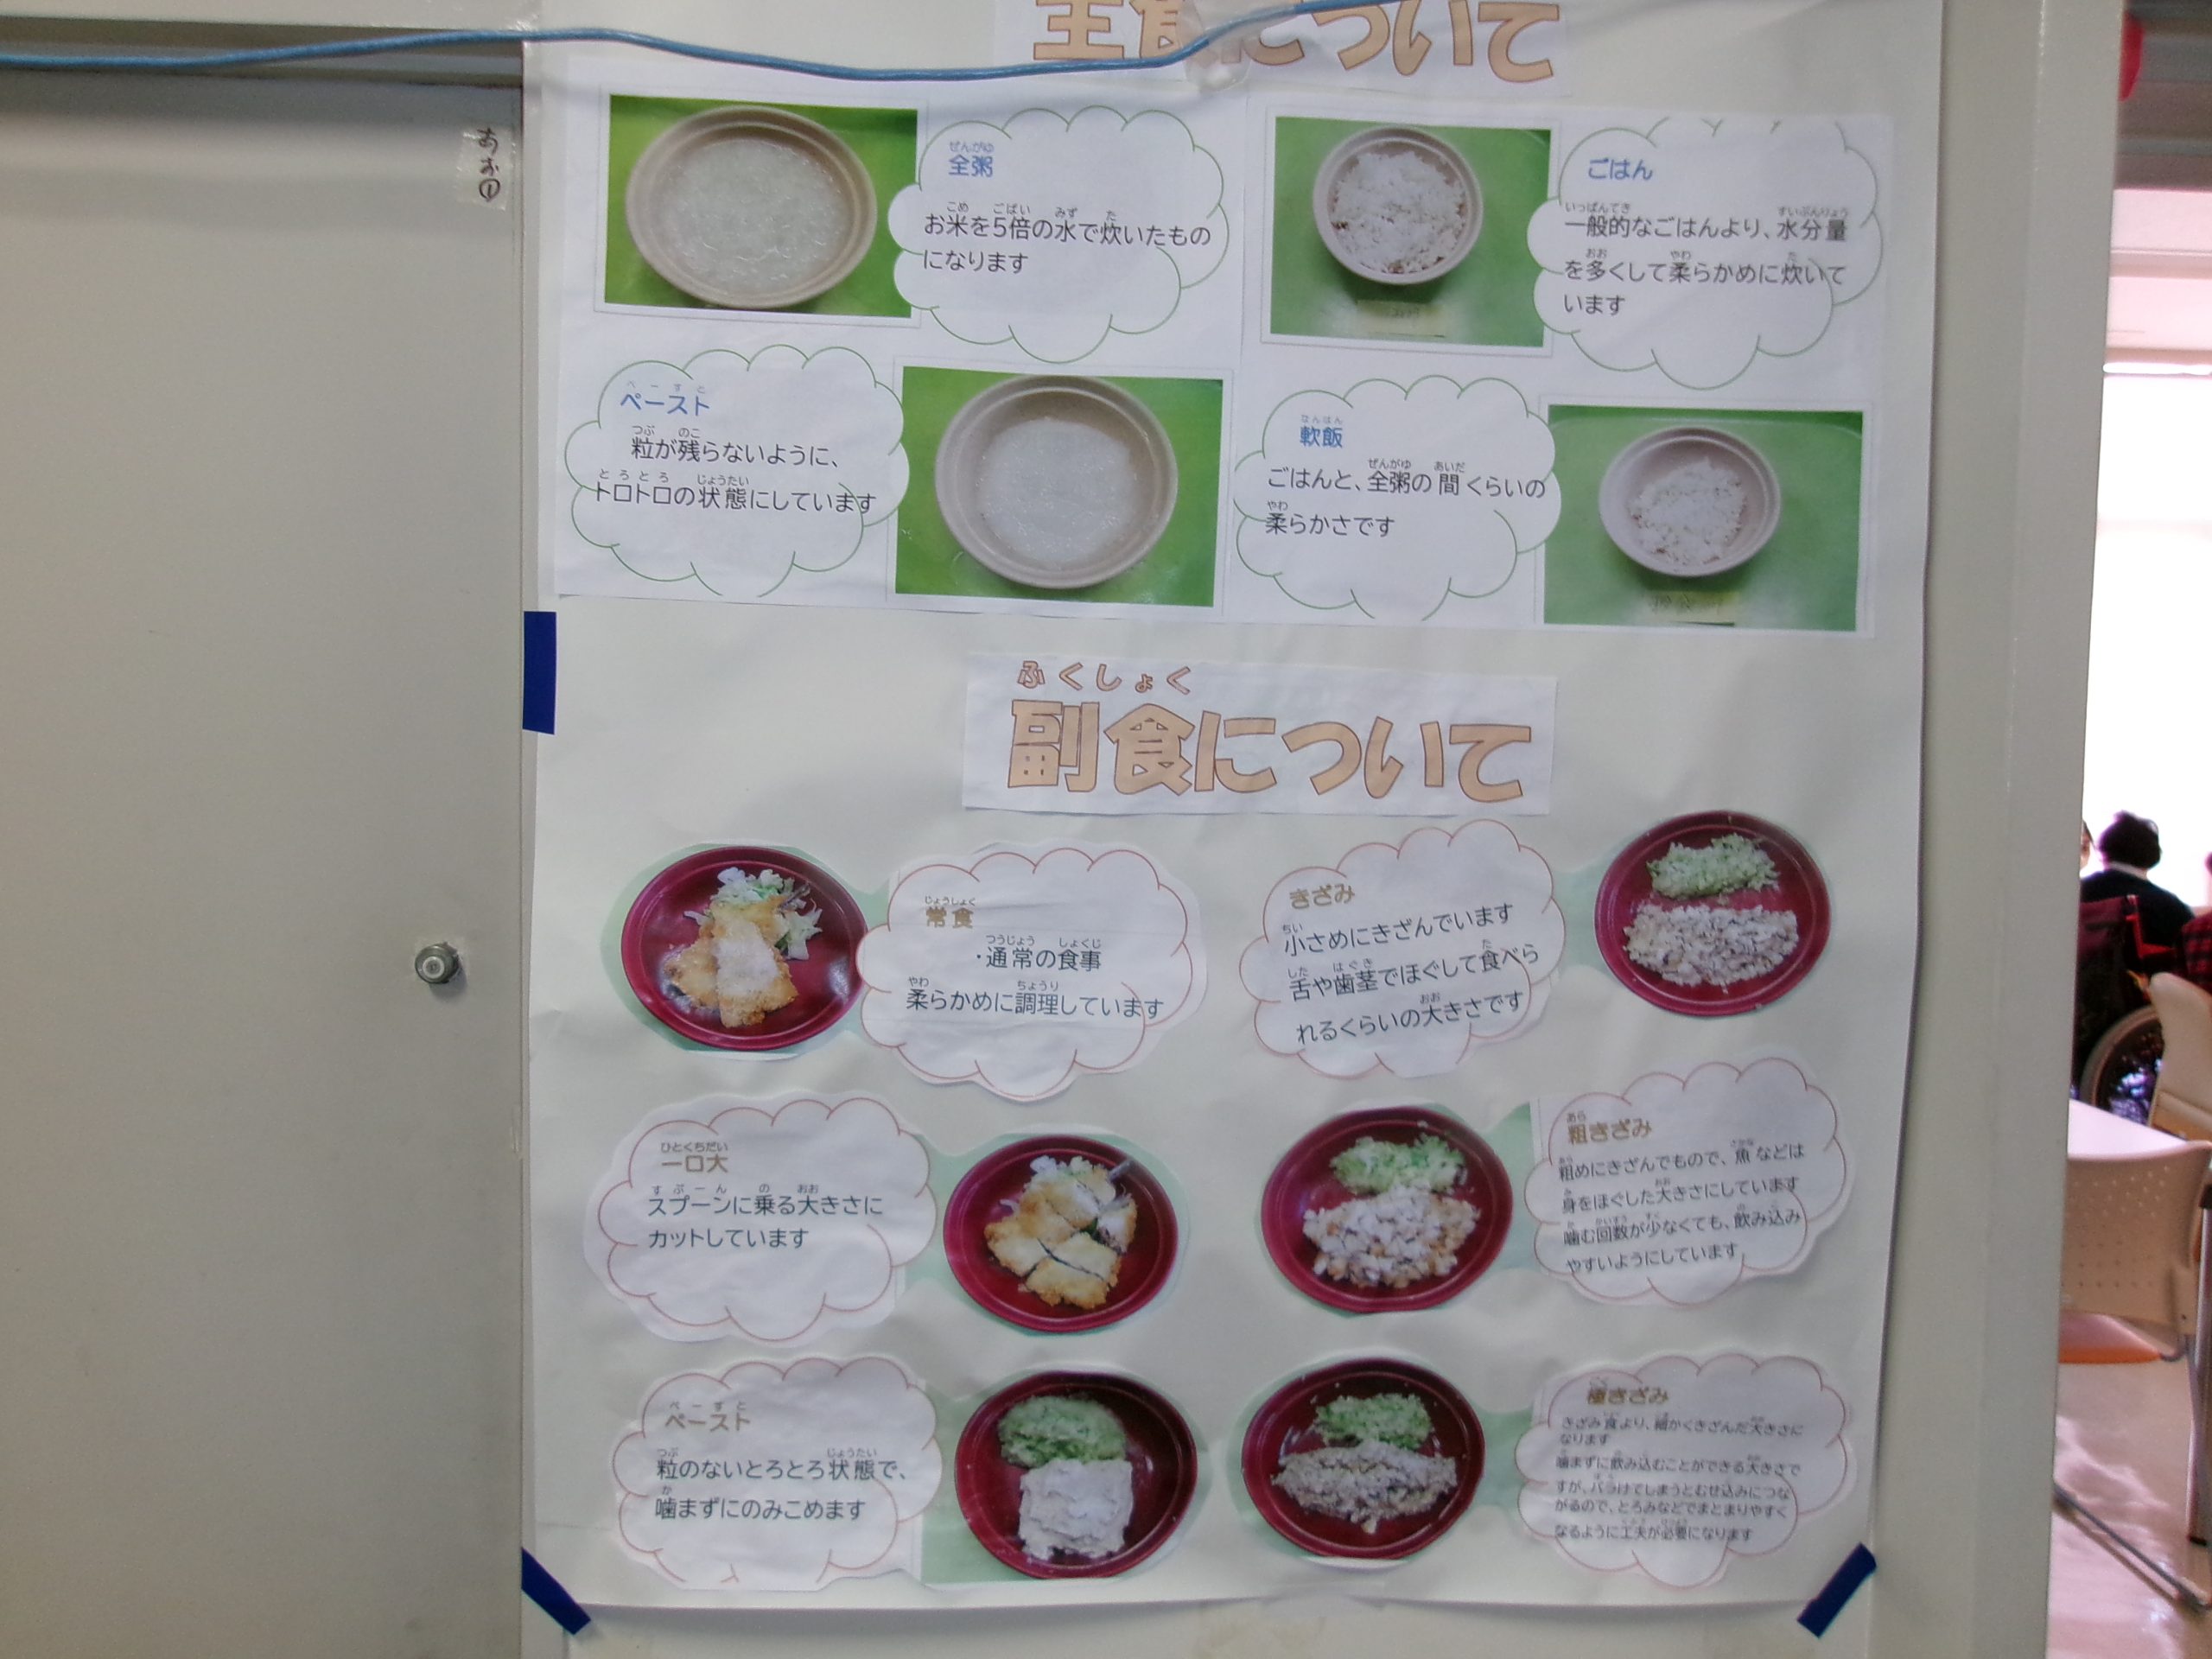 主食について
あお①
全粥
お米を5倍の水で炊いたもの
になります
ごはん
一般的なごはんより、水分量
を多くして柔らかめに炊いて
います
ペースト
粒が残らないように、
トロトロの状態にしています
軟飯
ごはんと、全粥の間くらいの
柔らかさです
ふくしょく
副食について
常食
・通常の食事
柔らかめに調理しています
きざみ
小さめにきざんでいます
舌や歯茎でほぐして食べら
れるくらいの大きさです
一口大
スプーンに乗る大きさに
カットしています
粗きざみ
粗めにきざんでもので、魚などは
身をほぐした大きさにしています
噛む回数が少なくても、飲み込み
やすいようにしています
ペースト
粒のないとろとろ状態で、
噛まずにのみこめます
極きざみ
きざみ食より、細かくきざんだ大きさに
なります
噛まずに飲み込むことができる大きさで
すが、バラけてしまうとむせ込みにつな
がるので、とろみなどでまとまりやすく
なるように工夫が必要になります